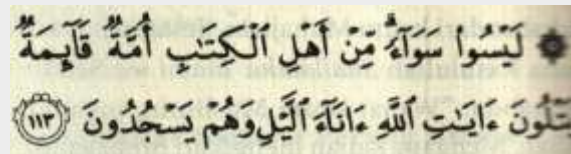 ۞ لَيۡسُوا۟ سَوَآءࣰۗ مِّنۡ أَهۡلِ ٱلۡكِتَٰبِ أُمَّةࣱ قَآئِمَةࣱ
يَتۡلُونَ ءَايَٰتِ ٱللَّهِ ءَانَآءَ ٱلَّيۡلِ وَهُمۡ يَسۡجُدُونَ ١١٣